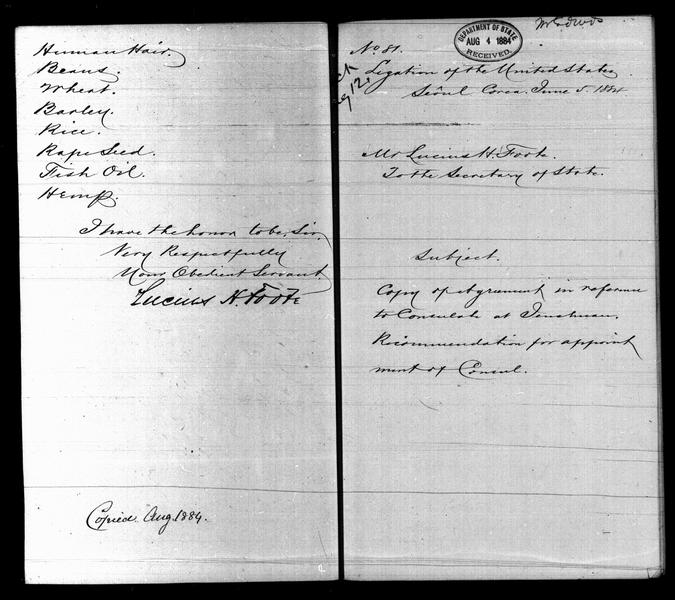 Human Hair.
Beans.
Wheat.
Barley.
Rice.
Rape Seed.
Fish Oil.
Hemp.
I have the honor to be, Sir,
Very Respectfully
Your Obedient Servant
Lucius H. Foote
Copied Aug. 1884.
DEPARTMENT OF STATE
AUG 4 1884
RECEIVED.
No. 81.
Legation of the United States
Sëoul Corea. June 5. 1884
Mr Lucius H. Foote.
To the Secretary of State.
Subject.
Copy of Agreement in reference
to Consulate at
Recommendation for appoint
ment of Consul.